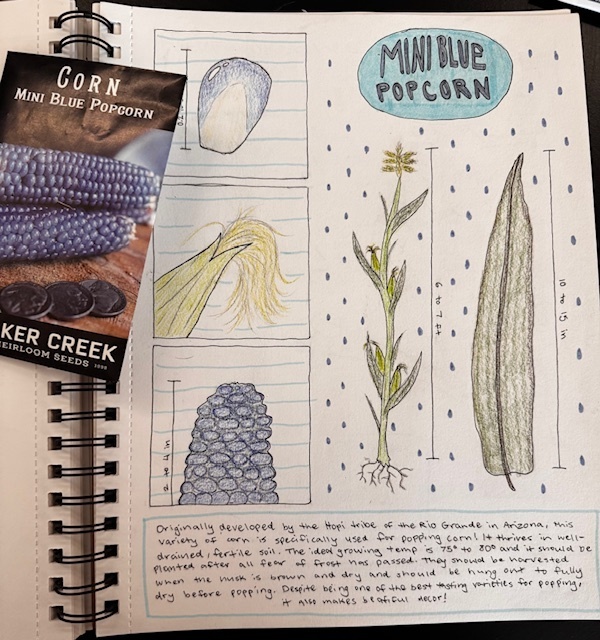 CORN
MINI BLUE POPCORN
KER CREEK
HEIRLOOM SEEDS 1998
MINI BLUE
POPCORN
6 to 7 ft
10 to 15 in
2 to 4 in
Originally developed by the Hopi tribe of the Rio Grande in Arizona, this
variety of corn is specifically used for popping corn! It thrives in well-
drained, fertile soil. The ideal growing temp is 75° to 80° and it should be
planted after all fear of frost has passed. They should be harvested
when the husk is brown and dry and should be hung out to fully
dry before popping. Despite being one of the best tasting varieties for popping,
it also makes beatiful decor!